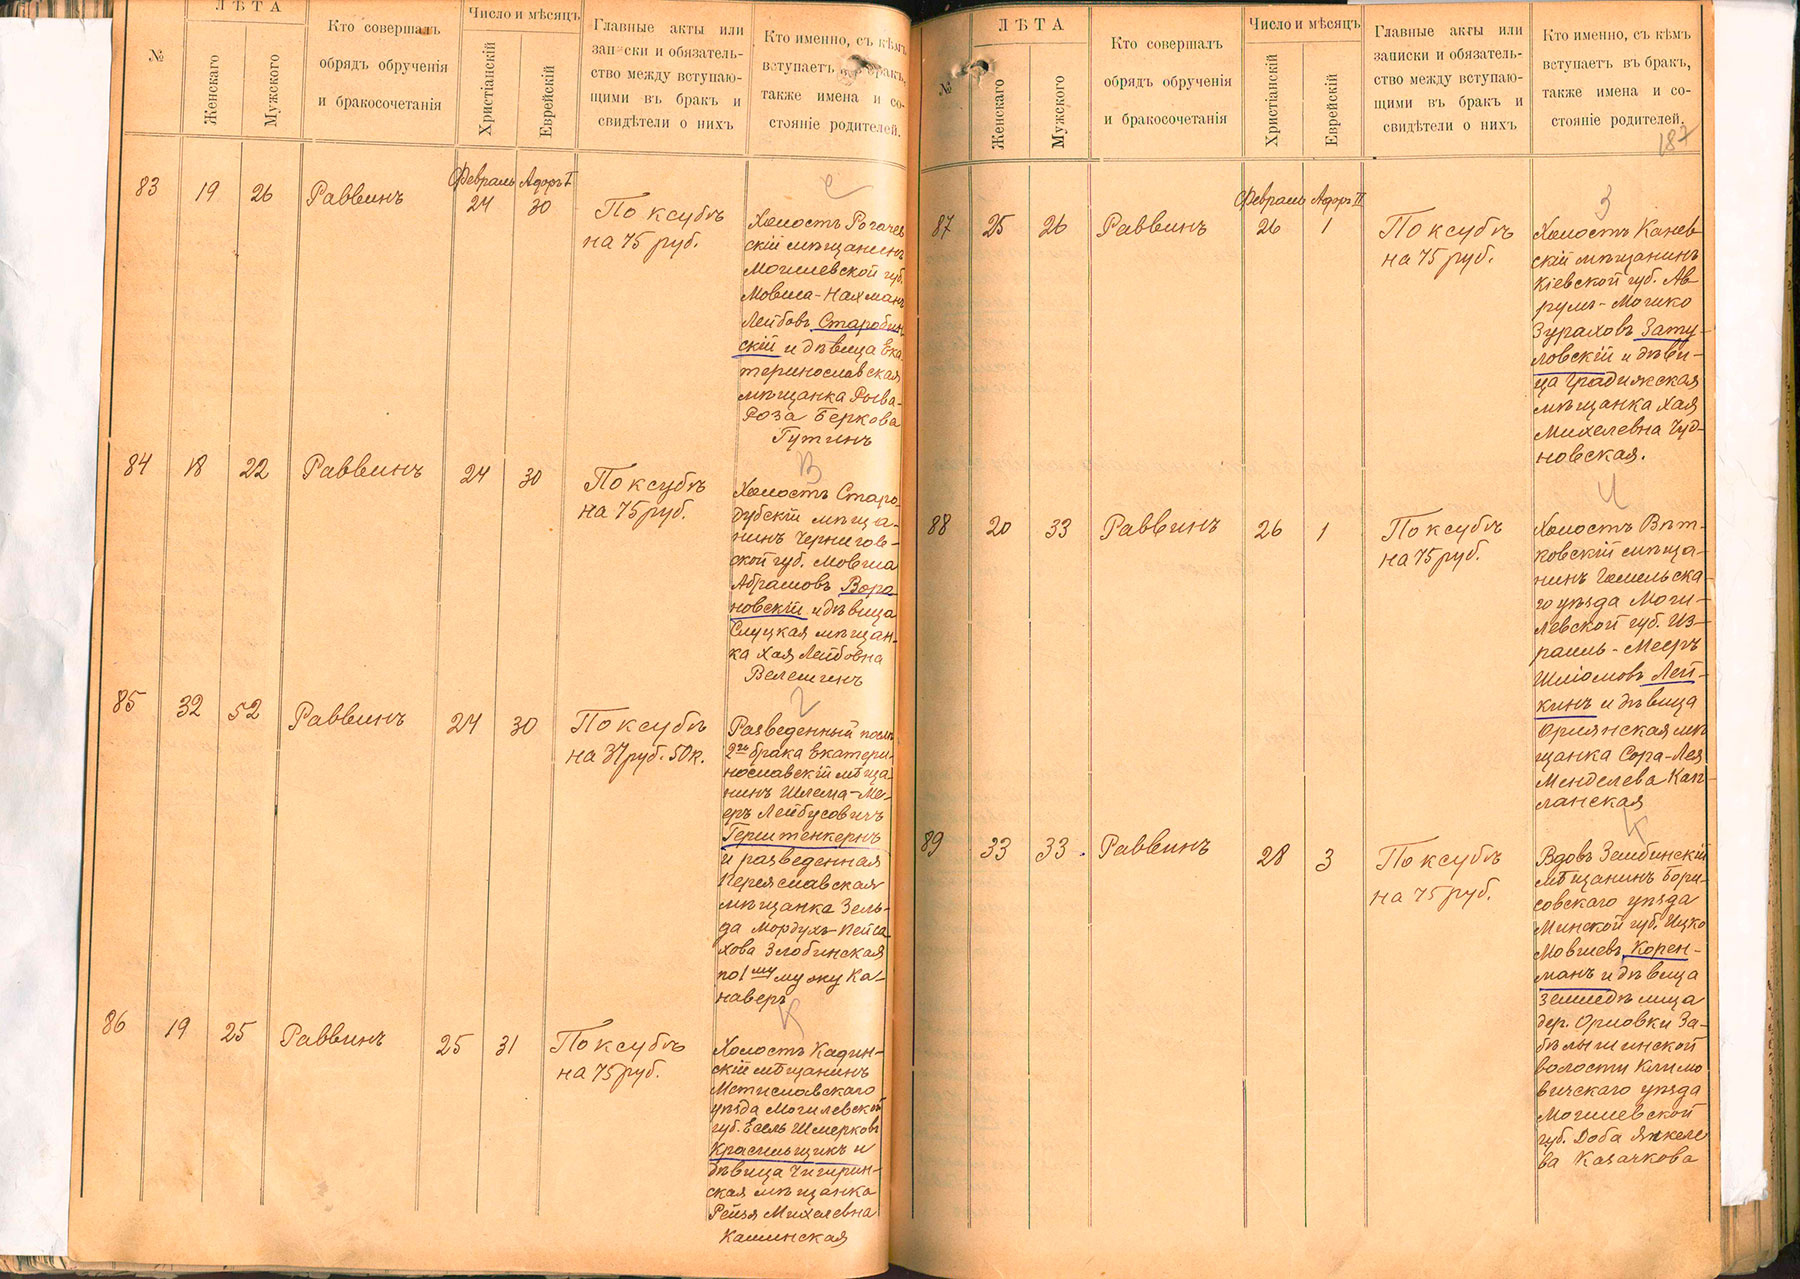 №
ЛѢТА
Женскаго
Мужского
Кто совершалъ
обрядъ обрученія
и бракосочетанія
Число и мѣсяцъ
Христіанскій
Еврейскій
Главные акты или
записки и обязатель-
ство между вступаю-
щими въ бракъ и
свидѣтели о нихъ
Кто именно, съ кѣмъ
вступаетъ въ бракъ,
также имена и со-
стояніе родителей.
83
19
26
Раввинъ
Февраль
24
Адоръ I
30
По ксубѣ
на 75 руб.
С
Холостъ Рогачев
скій мѣщанинъ
Могилевской губ.
Мовша-Нахманъ
Лейбовъ Старобин
скій и дѣвица Ека
теринославская
мѣщанка Рыва-
Роза Беркова
Гутинъ
84
18
22
Раввинъ
24
30
По ксубѣ
на 75 руб.
В
Холостъ Старо
дубскій мѣща-
нинъ Чернигов-
ской губ. Мовша
Абрамовъ Воро
новскій и дѣвица
Слуцкая мѣщан-
ка Хая Лейбовна
Велешинъ
85
32
52
Раввинъ
24
30
По ксубѣ
на 37 руб. 50 к.
Г
Разведенный послѣ
2го брака Екатери-
нославскій мѣща
нинъ Шлема-Ме-
еръ Лейбусовичъ
Герштенкернъ
и разведенная
Переяславская
мѣщанка Зель-
да Мордухъ-Пейса
хова Злобинская
по 1му мужу Ка-
наверъ
86
19
25
Раввинъ
25
31
По ксубѣ
на 75 руб.
К
Холостъ Кадин-
скій мѣщанинъ
Мстиславскаго
уѣзда Могилевской
губ. Есель Шмерковъ
Красильщикъ и
дѣвица Чигирин-
ская мѣщанка
Рейзя Михелевна
Кашинская
№
ЛѢТА
Женскаго
Мужского
Кто совершалъ
обрядъ обрученія
и бракосочетанія
Число и мѣсяцъ
Христіанскій
Еврейскій
Главные акты или
записки и обязатель-
ство между вступаю-
щими въ бракъ и
свидѣтели о нихъ
Кто именно, съ кѣмъ
вступаетъ въ бракъ,
также имена и со-
стояніе родителей.
187
87
25
26
Раввинъ
Февраль
26
Адоръ II
1
По ксубѣ
на 75 руб.
З
Холостъ Канев
скій мѣщанинъ
Кіевской губ. Ав
румъ-Мошко
Зураховъ Зату-
ловскій и дѣви-
ца Градижская
мѣщанка Хая
Михелевна Чуд-
новская.
88
20
33
Раввинъ
26
1
По ксубѣ
на 75 руб.
Л
Холостъ Вѣт-
ковскій мѣща-
нинъ Гомельска
го уѣзда Моги-
левской губ. Из-
раиль-Мееръ
Шліомовъ Лей-
кинъ и дѣвица
Орлянская мѣ
щанка Сора-Лея
Менделева Кап-
ланская
89
33
33
Раввинъ
28
3
По ксубѣ
на 75 руб.
К
Вдовъ Зембинскій
мѣщанинъ Бори-
совскаго уѣзда
Минской губ. Ицко
Мовшевъ Корен-
манъ и дѣвица
земледѣлица
дер. Орловки За-
бѣлышинской
волости Климо
вичскаго уѣзда
Могилевской
губ. Доба Янкеле
ва Казачкова